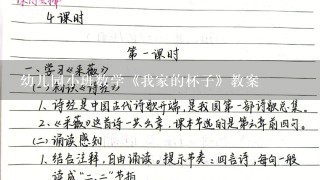 4课时
第一课时
一、学习《采薇》
幼儿园小班数学《我家的杯子》教案
1、诗经是中国古代诗歌开端,是我国第一部诗歌总集。
2、《采薇》这首诗一共六章,课本节选的是第六章前四句。
(二)诵读感知
1、结合注释,自由诵读。提示节奏:四言诗,每句一般
读成“二、二”节拍